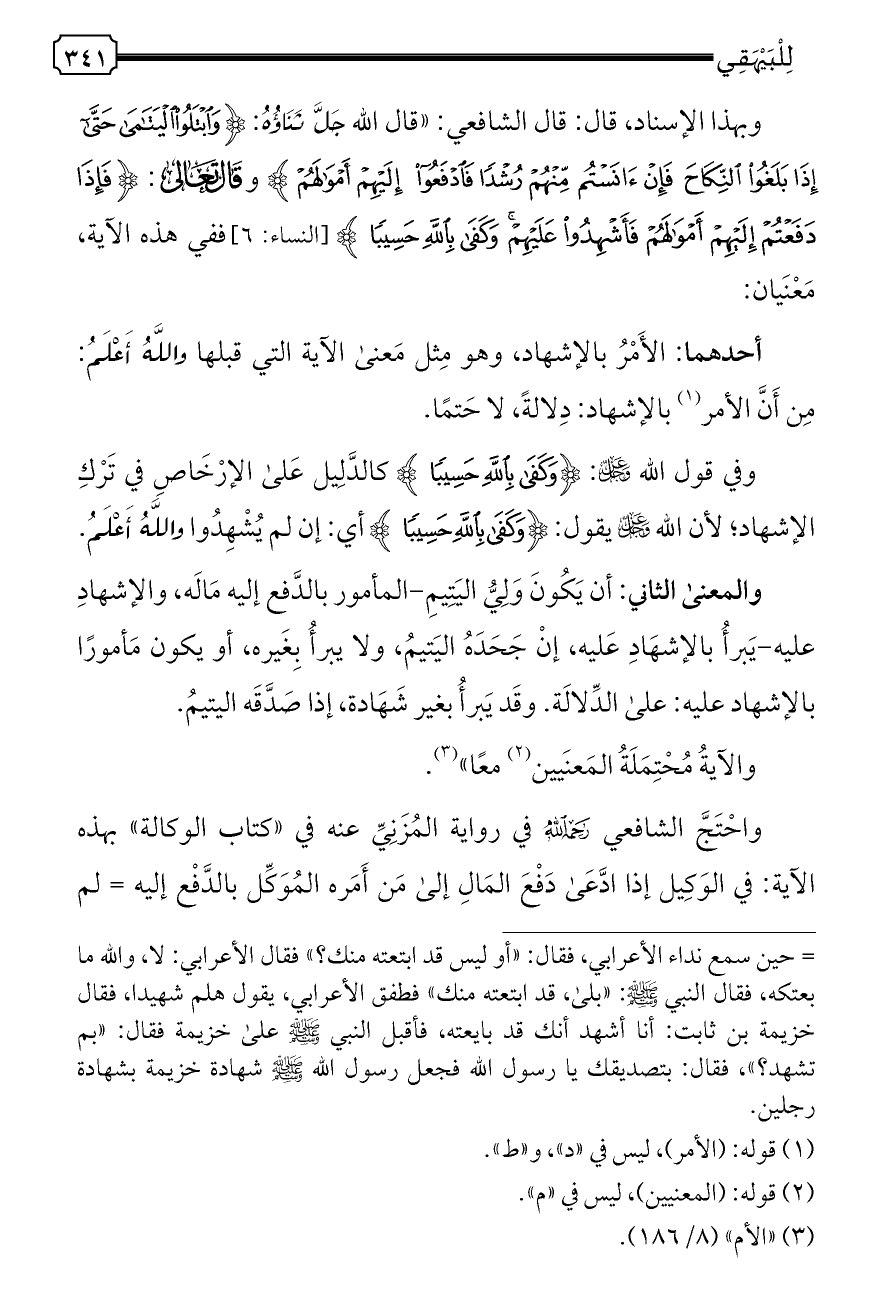 لِلْبَيْهَقِي ٣٤١
وبهذا الإسناد، قال: قال الشافعي: «قال الله جَلَّ ثَنَاؤُهُ: ﴿وَٱبْتَلُوا۟ ٱلْيَتَٰمَىٰ حَتَّىٰٓ
إِذَا بَلَغُوا۟ ٱلنِّكَاحَ فَإِنْ ءَانَسْتُم مِّنْهُمْ رُشْدًا فَٱدْفَعُوٓا۟ إِلَيْهِمْ أَمْوَٰلَهُمْ﴾ و قَالَ تَعَالَىٰ: ﴿فَإِذَا
دَفَعْتُمْ إِلَيْهِمْ أَمْوَٰلَهُمْ فَأَشْهِدُوا۟ عَلَيْهِمْ ۚ وَكَفَىٰ بِٱللَّهِ حَسِيبًا﴾ [النساء: ٦] ففي هذه الآية،
مَعْنَيان:
أحدهما: الأَمْرُ بالإشهاد، وهو مِثل مَعنىٰ الآية التي قبلها واللَّهُ أَعْلَمُ:
مِن أَنَّ الأمر(١) بالإشهاد: دِلالةً، لا حَتمًا.
وفي قول الله عَزَّ وَجَلَّ: ﴿وَكَفَىٰ بِٱللَّهِ حَسِيبًا﴾ كالدَّلِيل عَلىٰ الإرْخَاصِ في تَرْكِ
الإشهاد؛ لأن الله عَزَّ وَجَلَّ يقول: ﴿وَكَفَىٰ بِٱللَّهِ حَسِيبًا﴾ أي: إن لم يُشْهِدُوا واللَّهُ أَعْلَمُ.
والمعنىٰ الثاني: أن يَكُونَ وَلِيُّ اليَتِيمِ-المأمور بالدَّفع إليه مَالَه، والإشهادِ
عليه-يَبرأُ بالإشهَادِ عَليه، إنْ جَحَدَهُ اليَتيمُ، ولا يبرأُ بِغَيره، أو يكون مَأمورًا
بالإشهاد عليه: علىٰ الدِّلالَة. وقَد يَبرأُ بغير شَهَادة، إذا صَدَّقَه اليتيمُ.
والآيةُ مُحْتِمَلَةُ المَعنَيين(٢) معًا»(٣).
واحْتَجَّ الشافعي رَحِمَهُ اللَّهُ في رواية المُزَنِيِّ عنه في «كتاب الوكالة» بهذه
الآية: في الوَكِيل إذا ادَّعَىٰ دَفْعَ المَالِ إلىٰ مَن أَمَره المُوَكِّل بالدَّفْع إليه = لم
= حين سمع نداء الأعرابي، فقال: «أو ليس قد ابتعته منك؟» فقال الأعرابي: لا، والله ما
بعتكه، فقال النبي ﷺ: «بلىٰ، قد ابتعته منك» فطفق الأعرابي، يقول هلم شهيدا، فقال
خزيمة بن ثابت: أنا أشهد أنك قد بايعته، فأقبل النبي ﷺ علىٰ خزيمة فقال: «بم
تشهد؟»، فقال: بتصديقك يا رسول الله فجعل رسول الله ﷺ شهادة خزيمة بشهادة
رجلين.
(١) قوله: (الأمر)، ليس في «د»، و«ط».
(٢) قوله: (المعنيين)، ليس في «م».
(٣) «الأم» (٨/ ١٨٦).